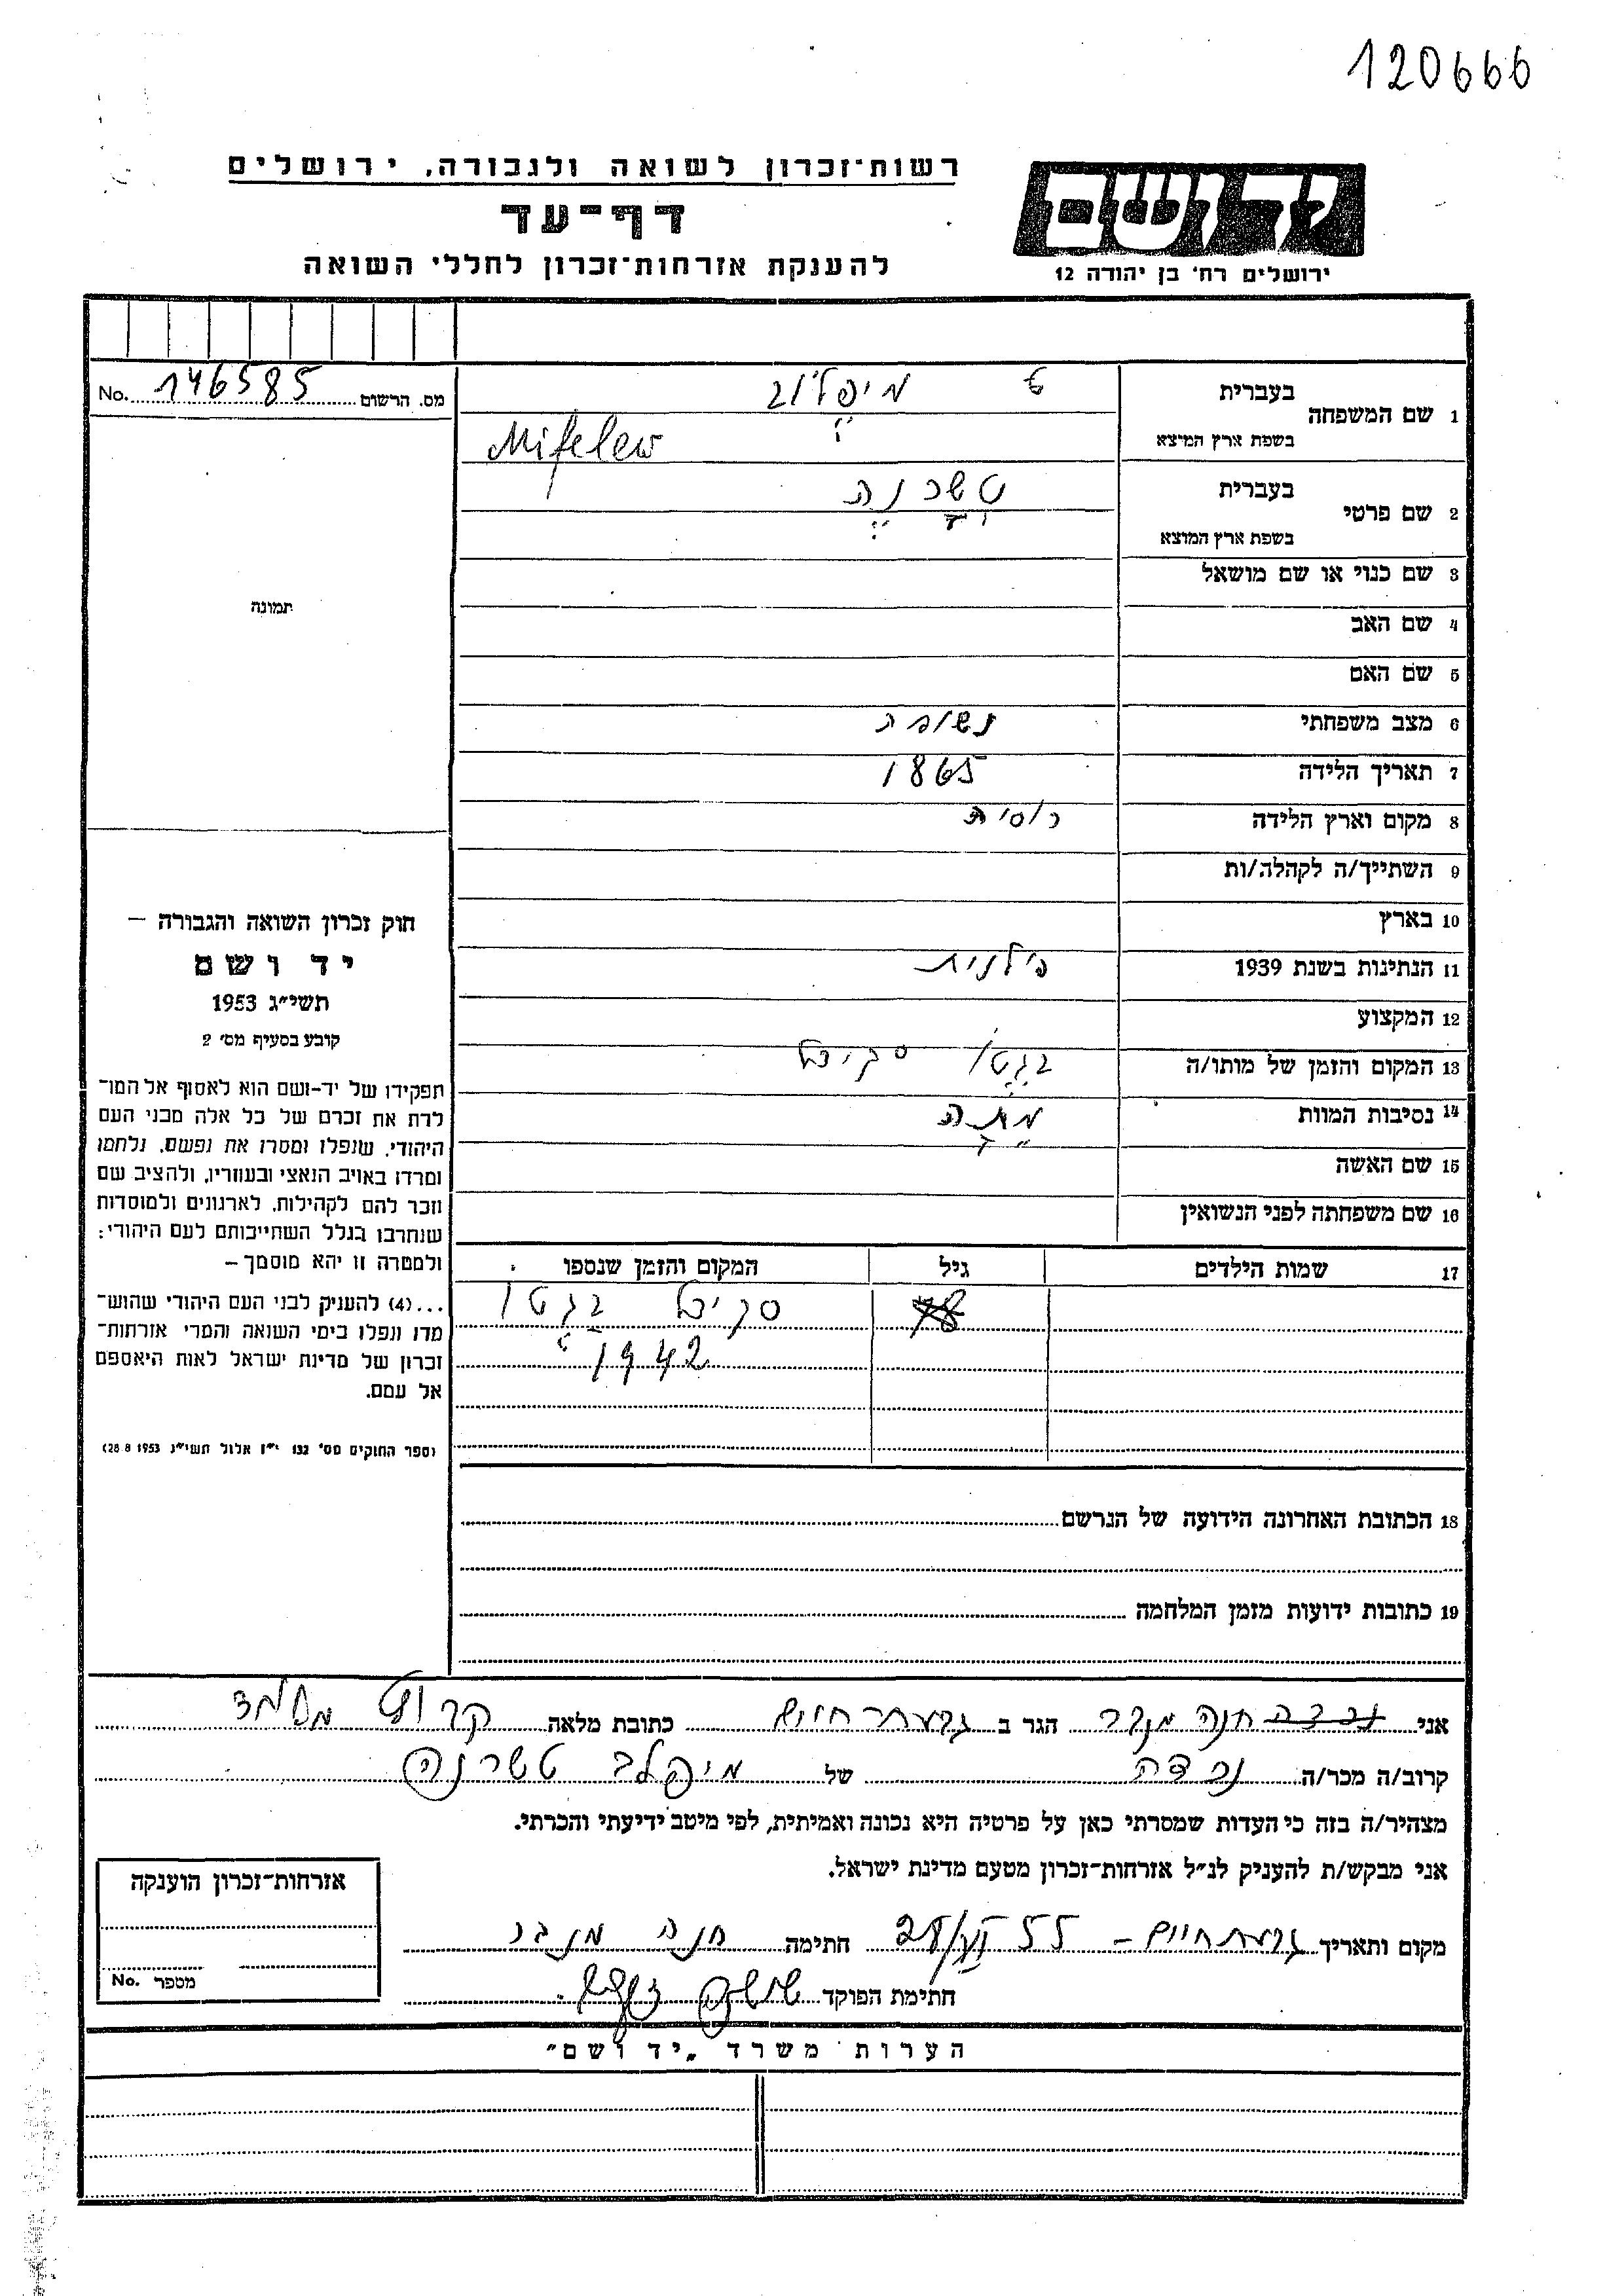 120666
רשות־זכרון לשואה ולגבורה, ירושלים
יד ושם
דף־עד
להענקת אזרחות־זכרון לחללי השואה
ירושלים רח' בן יהודה 12
No. 146585 מס. הרשום
1 שם המשפחה בעברית
בשפת ארץ המוצא Mifelew
2 שם פרטי בעברית טשרנה
בשפת ארץ המוצא
תמונה
3 שם כנוי או שם מושאל
4 שם האב
5 שם האם
6 מצב משפחתי נשואה
7 תאריך הלידה 1865
8 מקום וארץ הלידה רוסיה
9 השתייך/ה לקהלה/ות
10 בארץ
11 הנתינות בשנת 1939 פולנית
12 המקצוע
13 המקום והזמן של מותו/ה בגטו
14 נסיבות המוות מתה
15 שם האשה
16 שם משפחתה לפני הנשואין
17 שמות הילדים גיל המקום והזמן שנספו
78 בגטו
1942
חוק זכרון השואה והגבורה –
יד ושם
תשי"ג 1953
קובע בסעיף מס' 2
תפקידו של יד-ושם הוא לאסוף אל המו־
לדת את זכרם של כל אלה מבני העם
היהודי, שנפלו ומסרו את נפשם, נלחמו
ומרדו באויב הנאצי ובעוזריו, ולהציב שם
וזכר להם לקהילות, לארגונים ולמוסדות
שנחרבו בגלל השתייכותם לעם היהודי;
ולמטרה זו יהא מוסמך –
...(4) להעניק לבני העם היהודי שהוש־
מדו ונפלו בימי השואה והמרי אזרחות־
זכרון של מדינת ישראל לאות היאספם
אל עמם.
(ספר החוקים מס' 132 י"ז אלול תשי"ג 28.8.1953)
18 הכתובת האחרונה הידועה של הנרשם
19 כתובות ידועות מזמן המלחמה
אני נכדה חנה מנדר הגר ב גבעת חיים כתובת מלאה
קרוב/ה מכר/ה נכדה של מיפלב טשרנה
מצהיר/ה בזה כי העדות שמסרתי כאן על פרטיה היא נכונה ואמיתית, לפי מיטב ידיעתי והכרתי.
אני מבקש/ת להעניק לנ"ל אזרחות־זכרון מטעם מדינת ישראל.
מקום ותאריך גבעת חיים – 55 חתימה חנה מנדר
חתימת הפוקד
אזרחות־זכרון הוענקה
No. מספר
הערות משרד „יד ושם"